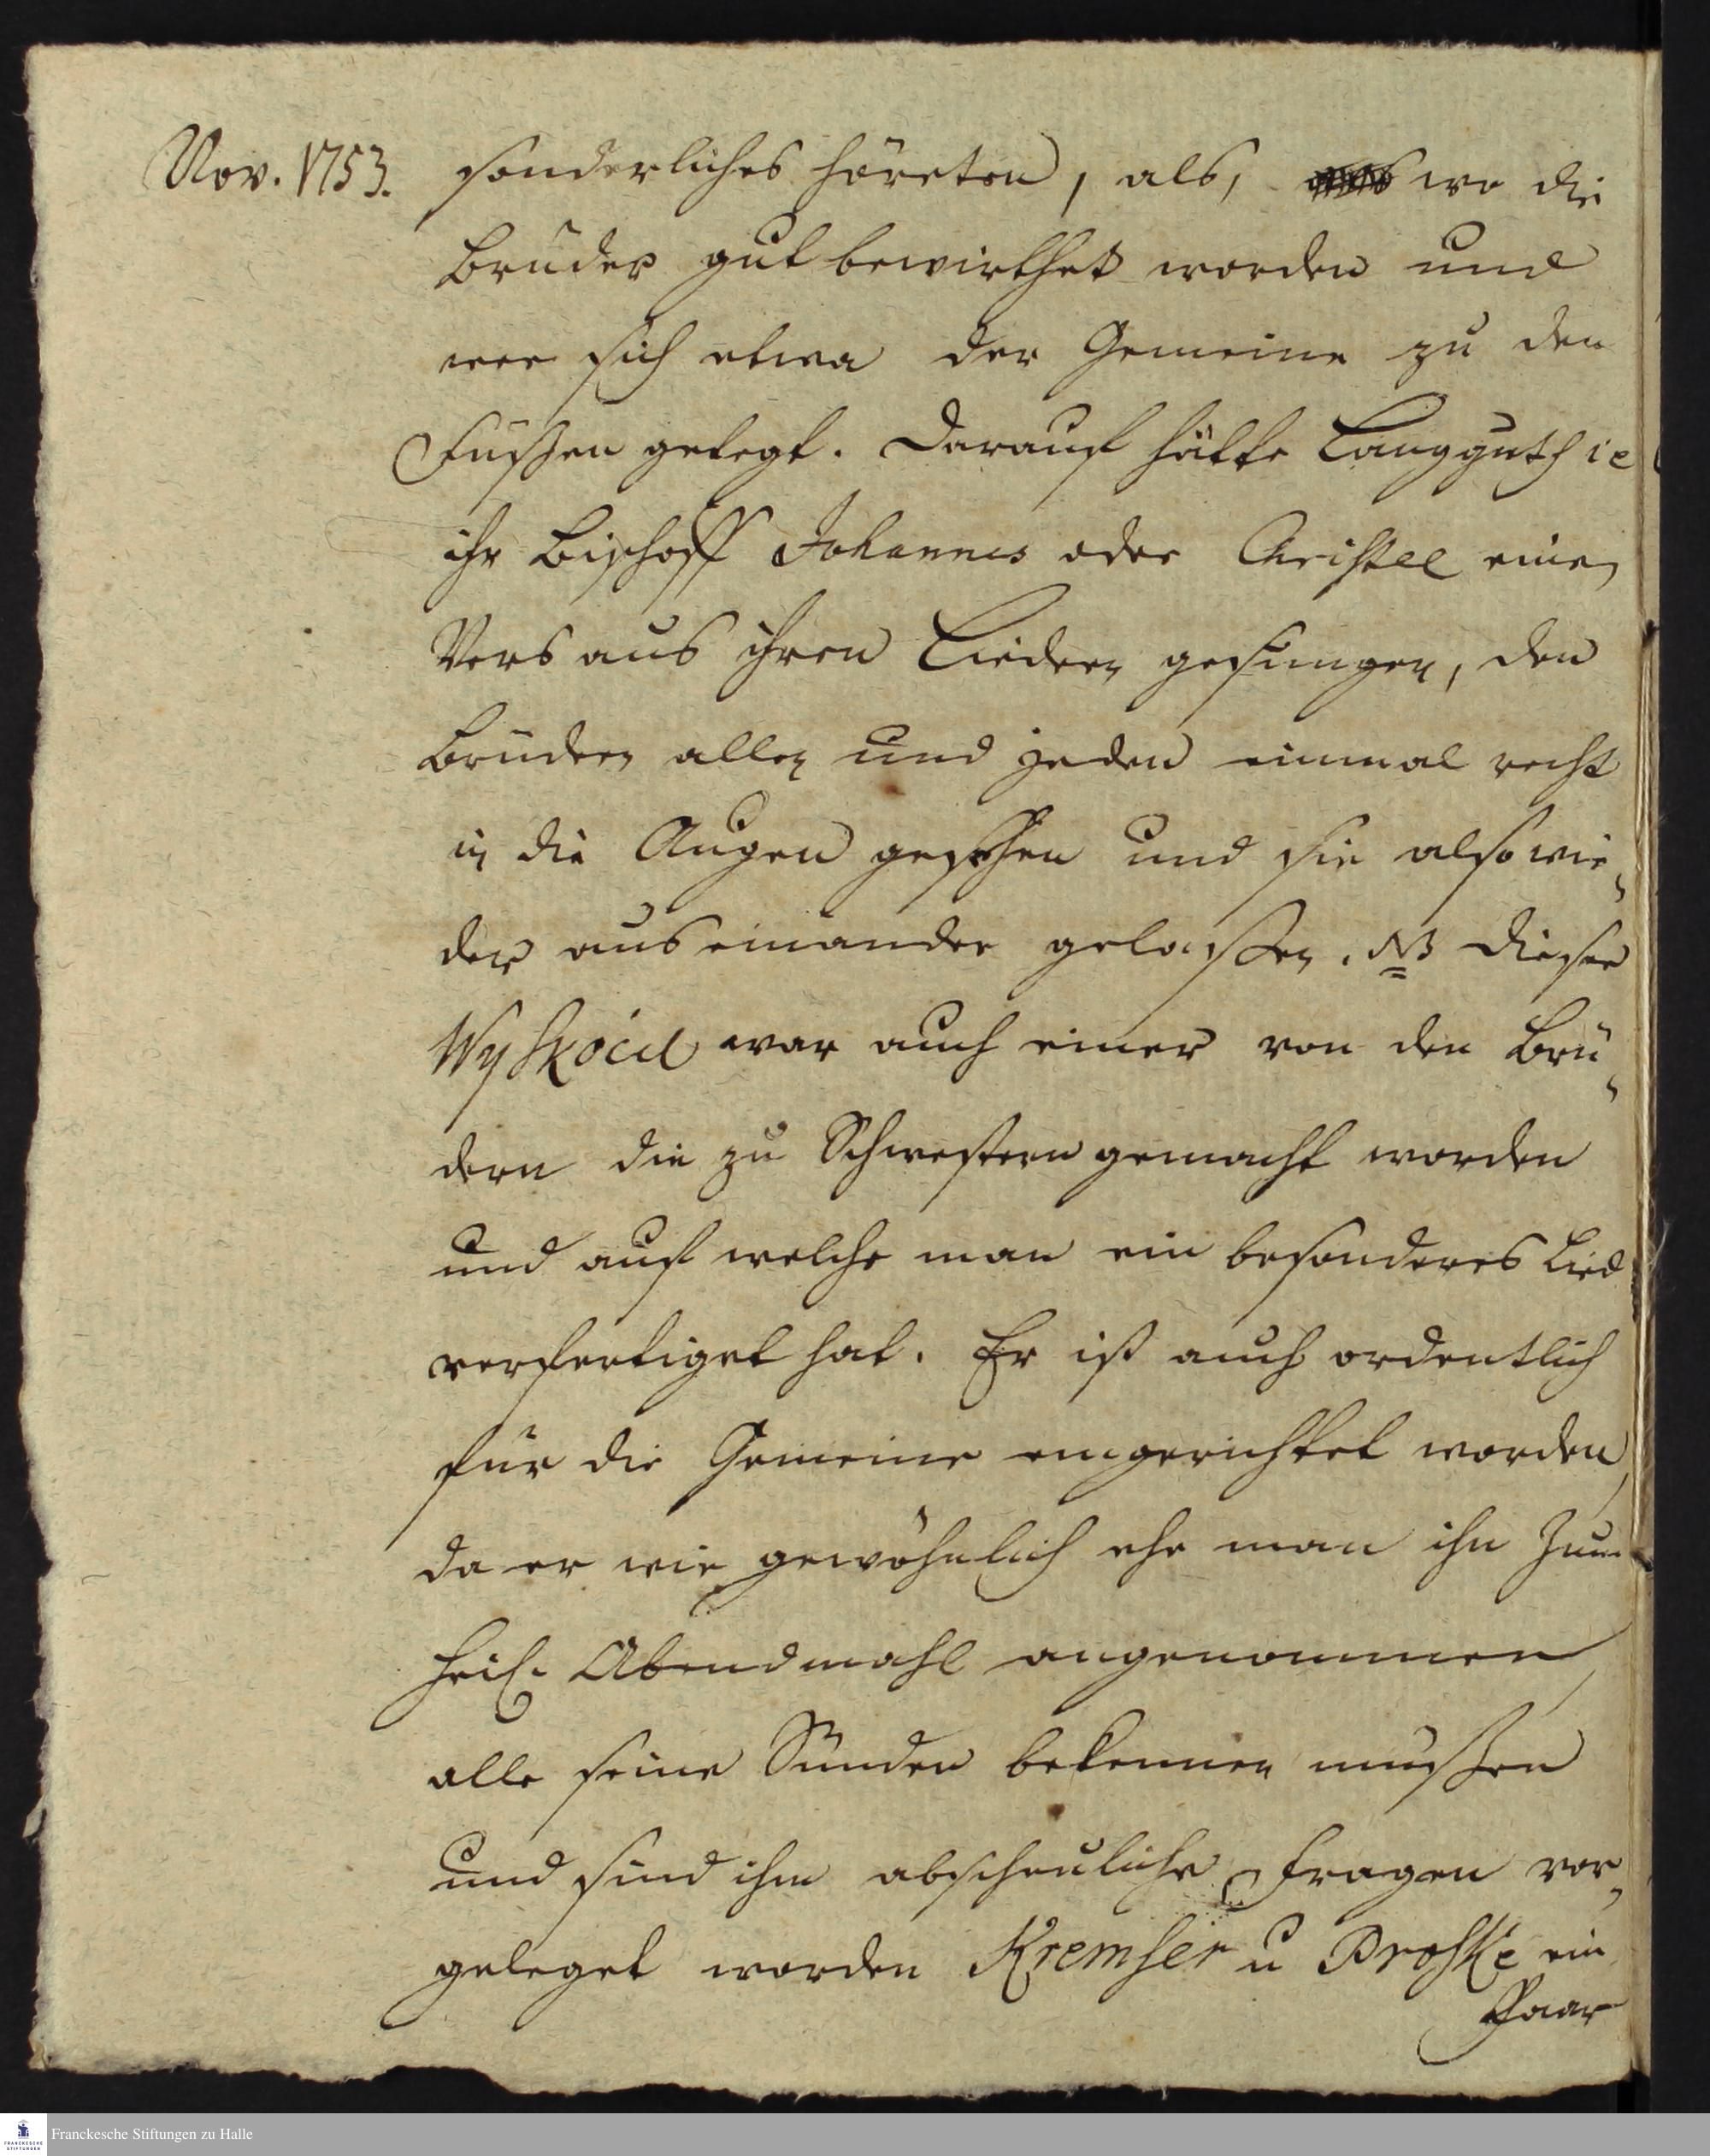 Nov. 1753.
sonderliches höreten, als, wo die
Brüder gut bewirthet worden und
wer sich etwa der Gemeine zu den
Füßen gelegt. Darauf hätte Langguth ie
ihr Bischoff Johannes oder Christel einen
Vers aus ihren Liedern gesungen, den
Brüdern allen und jeden einmal recht
in die Augen gesehen und sie also wie,
der aus einander gelaßen. NB Dieser
Wyskocil war auch einer von den Brü,
dern die zu Schwestern gemacht worden
und auf welche man ein besonderes Lied
verfertiget hat. Er ist auch ordentlich
für die Gemeine eingerichtet worden,
da er wie gewöhnlich ehe man ihn zum
heil. Abendmahl angenommen,
alle seine Sünden bekennen müßen
und sind ihm abscheuliche Fragen vor,
geleget worden Kremser u Proske ein
Paar
Franckesche Stiftungen zu Halle
FRANCKESCHE
STIFTUNGEN